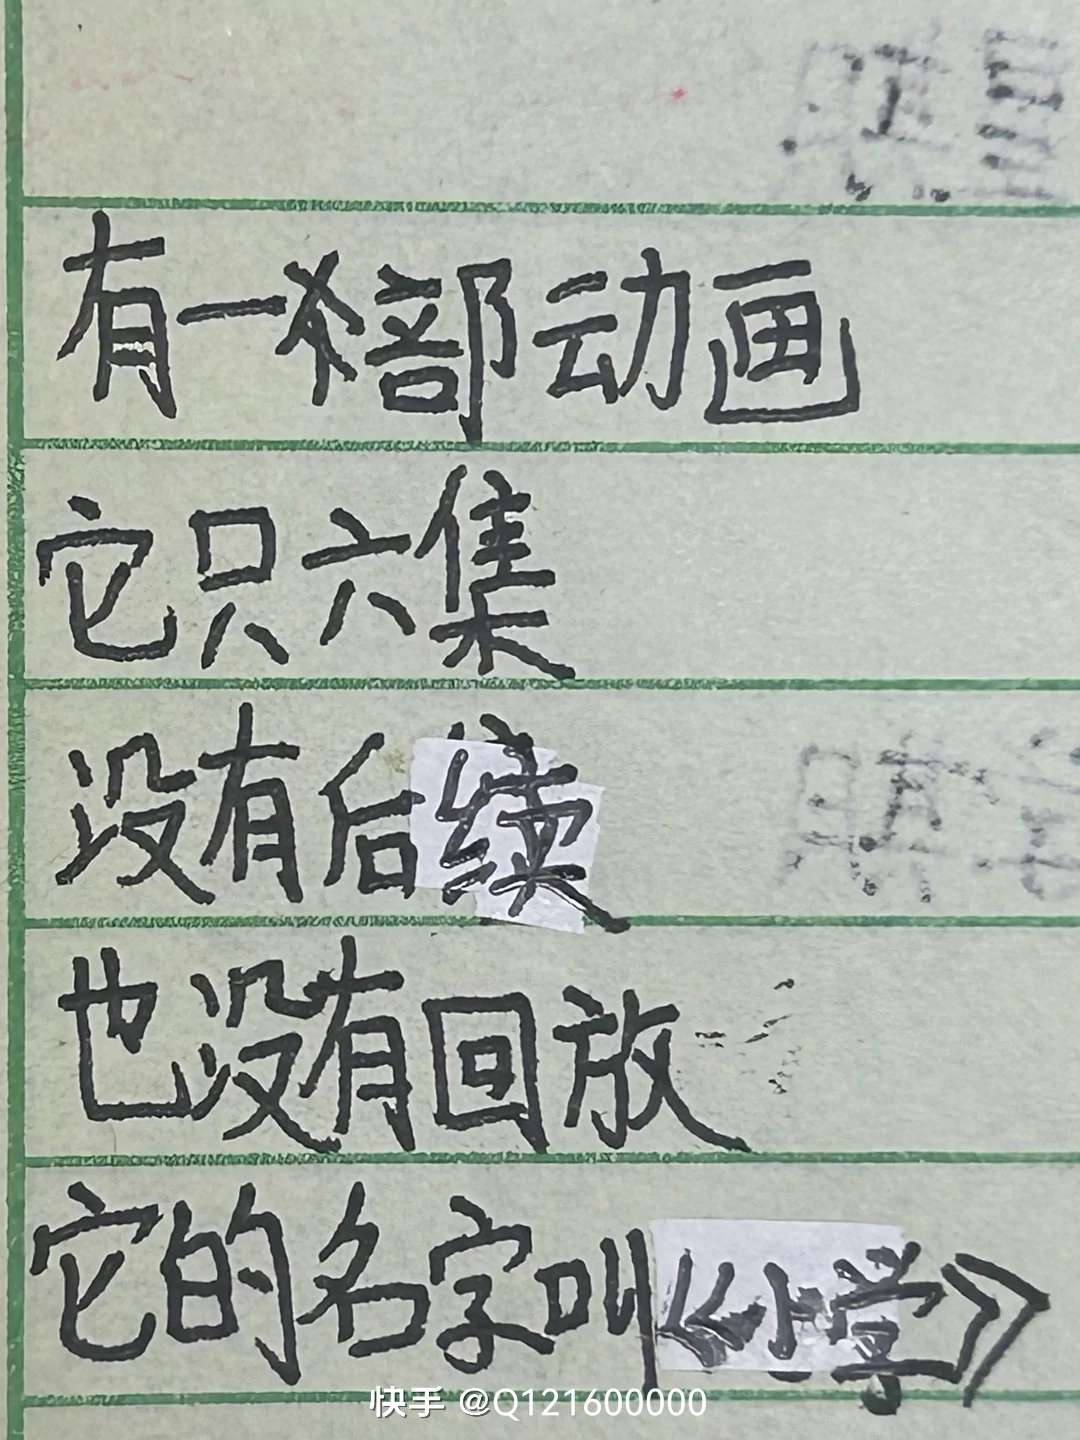 有一部动画
它只六集
没有后续
也没有回放
它的名字叫《小学》
快手 @Q121600000